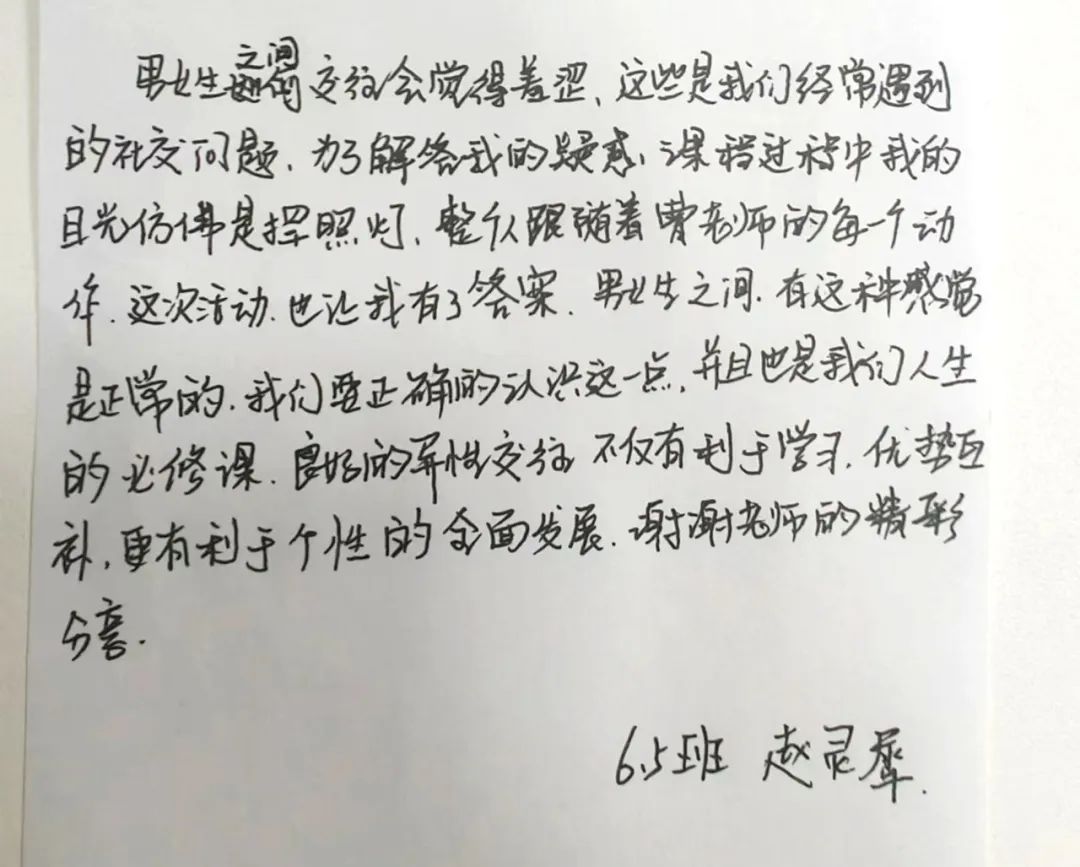 男女生之间交往会觉得羞涩、这些是我们经常遇到
的社交问题.为了解答我的疑惑、课程过程中我的
目光仿佛是探照灯、整个人跟随着曹老师的每一个动
作.这次活动.也让我有了答案.男女生之间.有这种感觉
是正常的.我们要正确的认识这一点.并且也是我们人生
的必修课.良好的异性交往不仅有利于学习.优势互
补.更有利于个性的全面发展.谢谢老师的精彩
分享.
6.5班 赵灵犀.